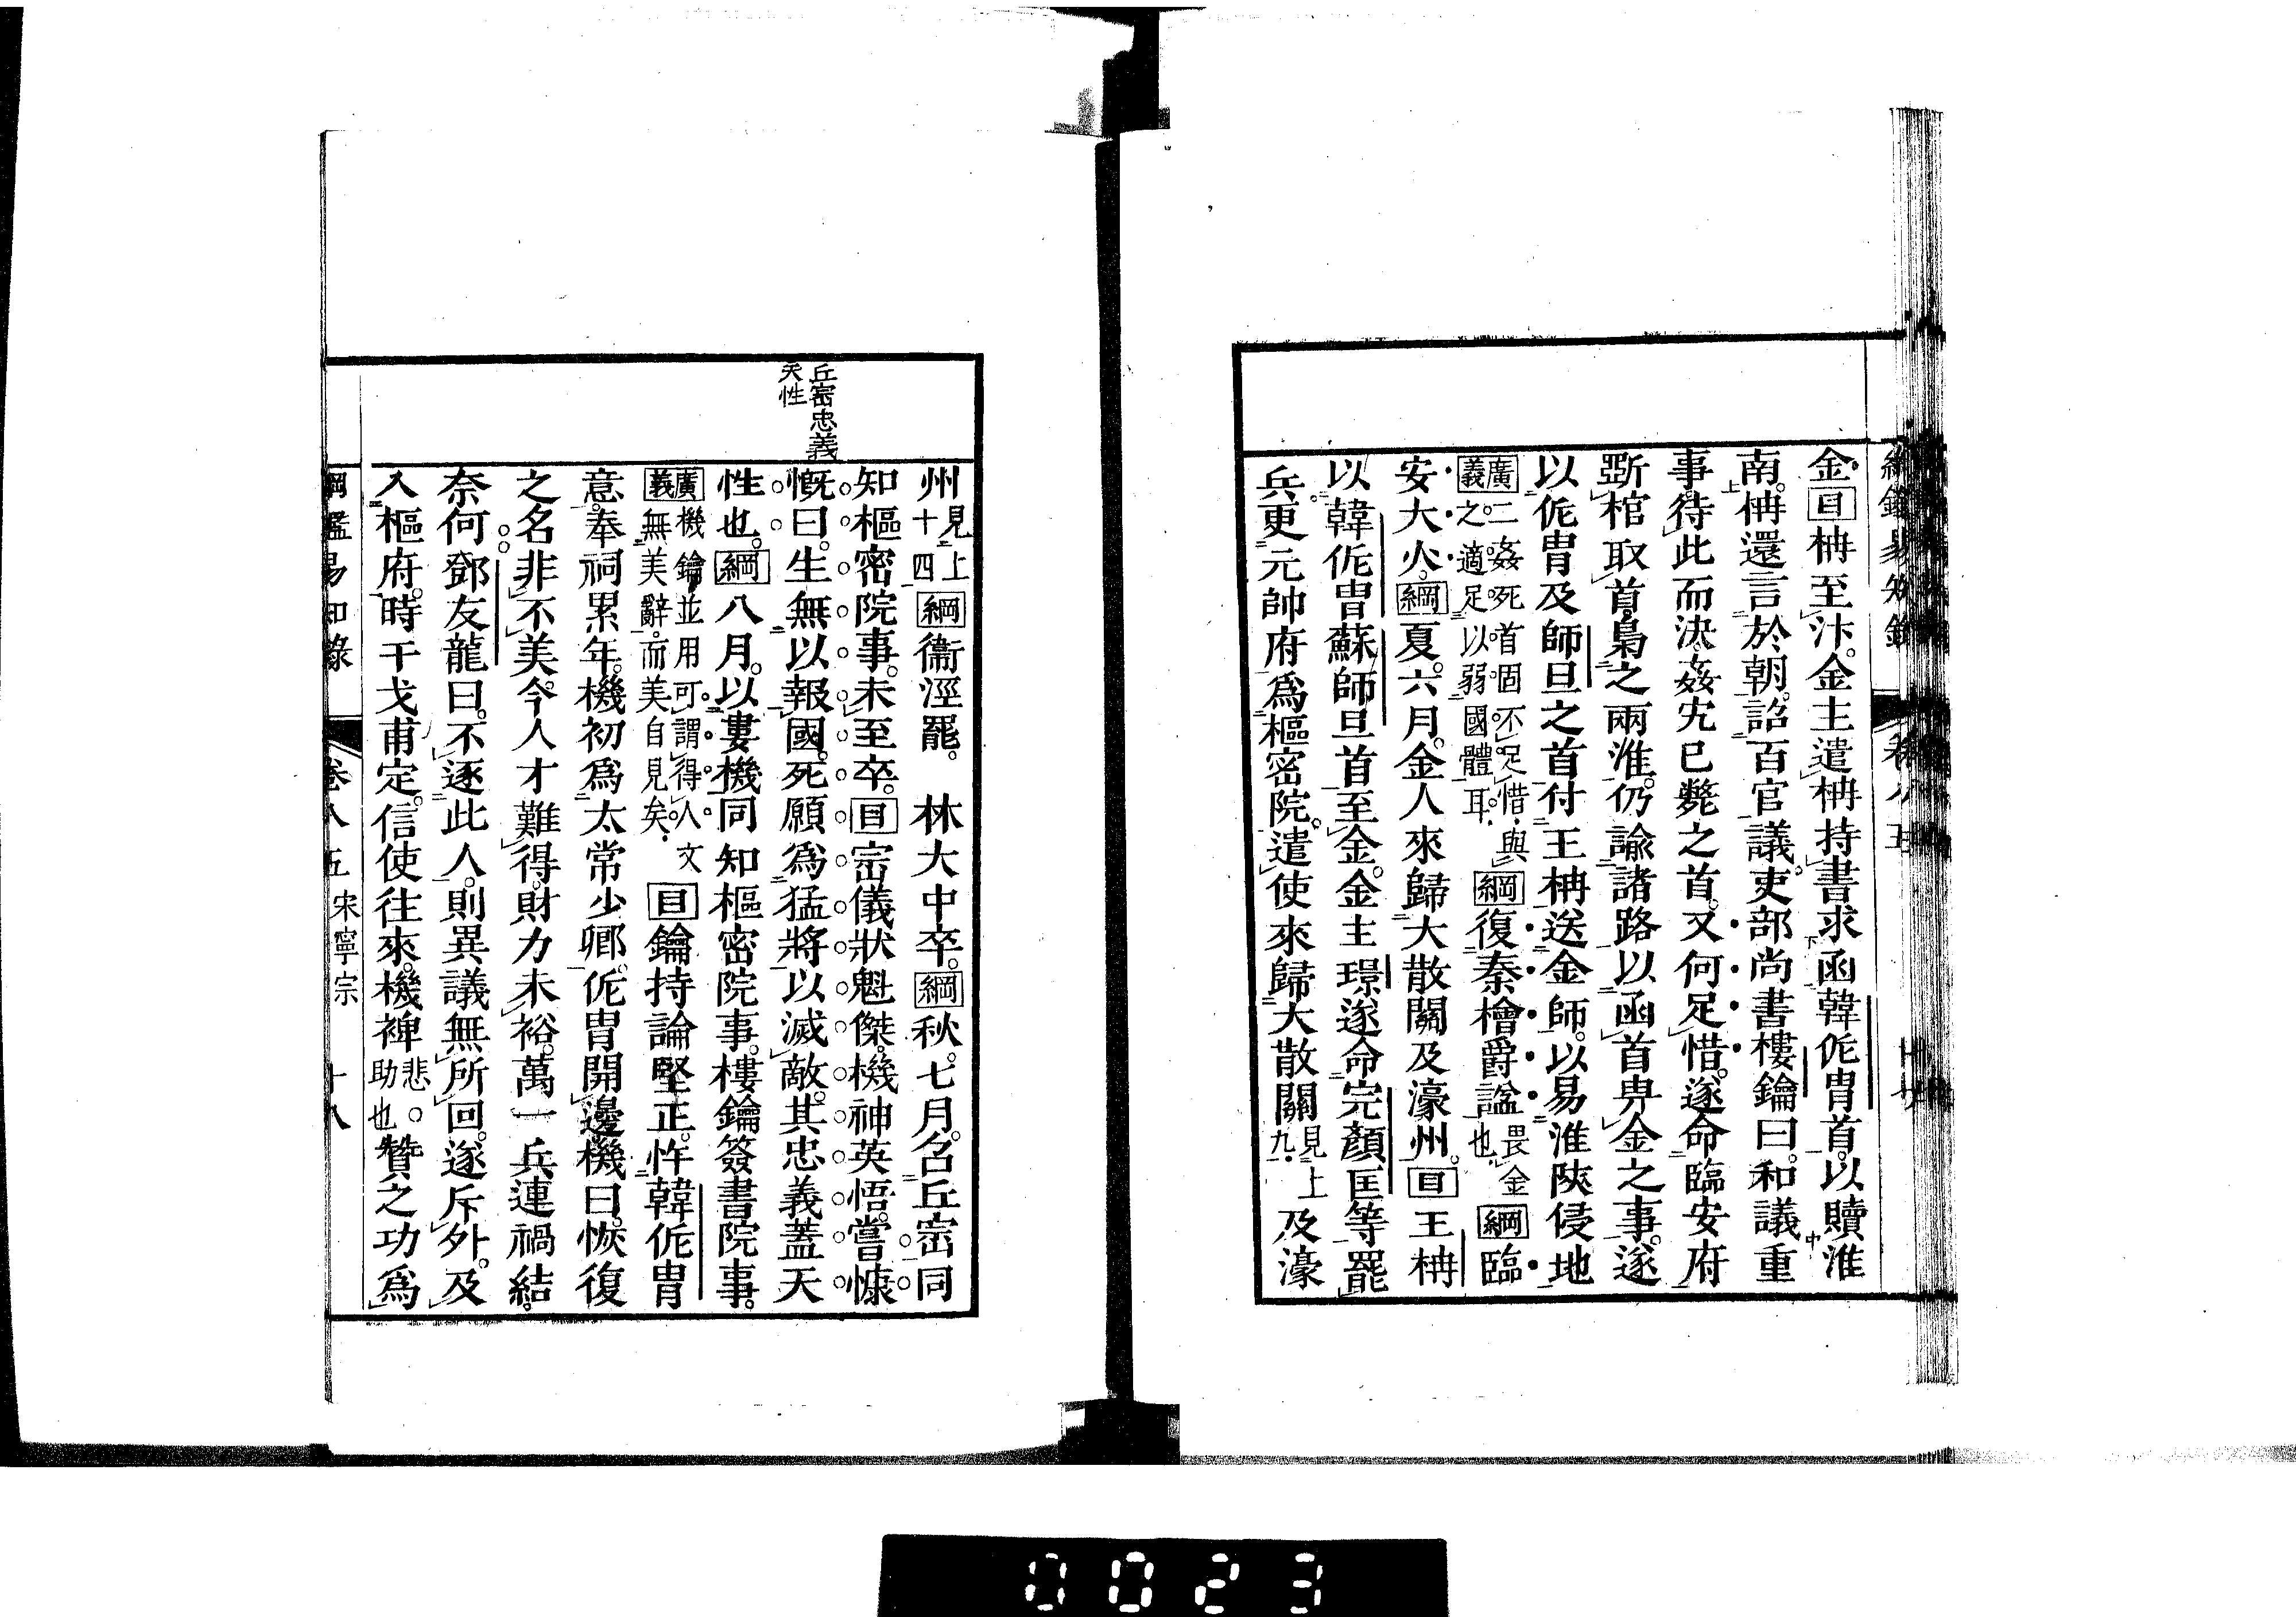 綱鑑易知錄 卷八五
金。目柟至汴。金主遣柟持書求函韓侂胄首。以贖淮
南。柟還言於朝。詔百官議。吏部尚書樓鑰曰。和議重
事。待此而決。姦宄已斃之首。又何足惜。遂命臨安府
斲棺取首。梟之兩淮。仍諭諸路以函首畀金之事。遂
以侂胄及師旦之首付王柟送金師。以易淮陝侵地
廣義二姦死首固不足惜。與之。適足以弱國體耳。綱復秦檜爵諡畏金也。綱臨
安大火。綱夏。六月。金人來歸大散關及濠州。目王柟
以韓侂胄蘇師旦首至金。金主璟遂命完顏匡等罷
兵。更元帥府爲樞密院。遣使來歸大散關見上九。及濠
丘崈忠義
天性
州見上十四綱衞涇罷。 林大中卒。綱秋。七月。召丘崈同
知樞密院事。未至卒。目崈儀狀魁傑。機神英悟。嘗慷
慨曰。生無以報國。死願爲猛將以滅敵。其忠義蓋天
性也。綱八月。以婁機同知樞密院事。樓鑰簽書院事。
廣義機鑰並用可謂得人。文無美辭。而美自見矣。目鑰持論堅正。忤韓侂胄
意。奉祠累年。機初爲太常少卿。侂胄開邊。機曰。恢復
之名非不美。今人才難得。財力未裕。萬一兵連禍結。
奈何。鄧友龍曰。不逐此人。則異議無所回。遂斥外。及
入樞府。時干戈甫定。信使往來。機裨悲。助也贊之功爲
綱鑑易知錄 卷八五 宋寧宗 十八